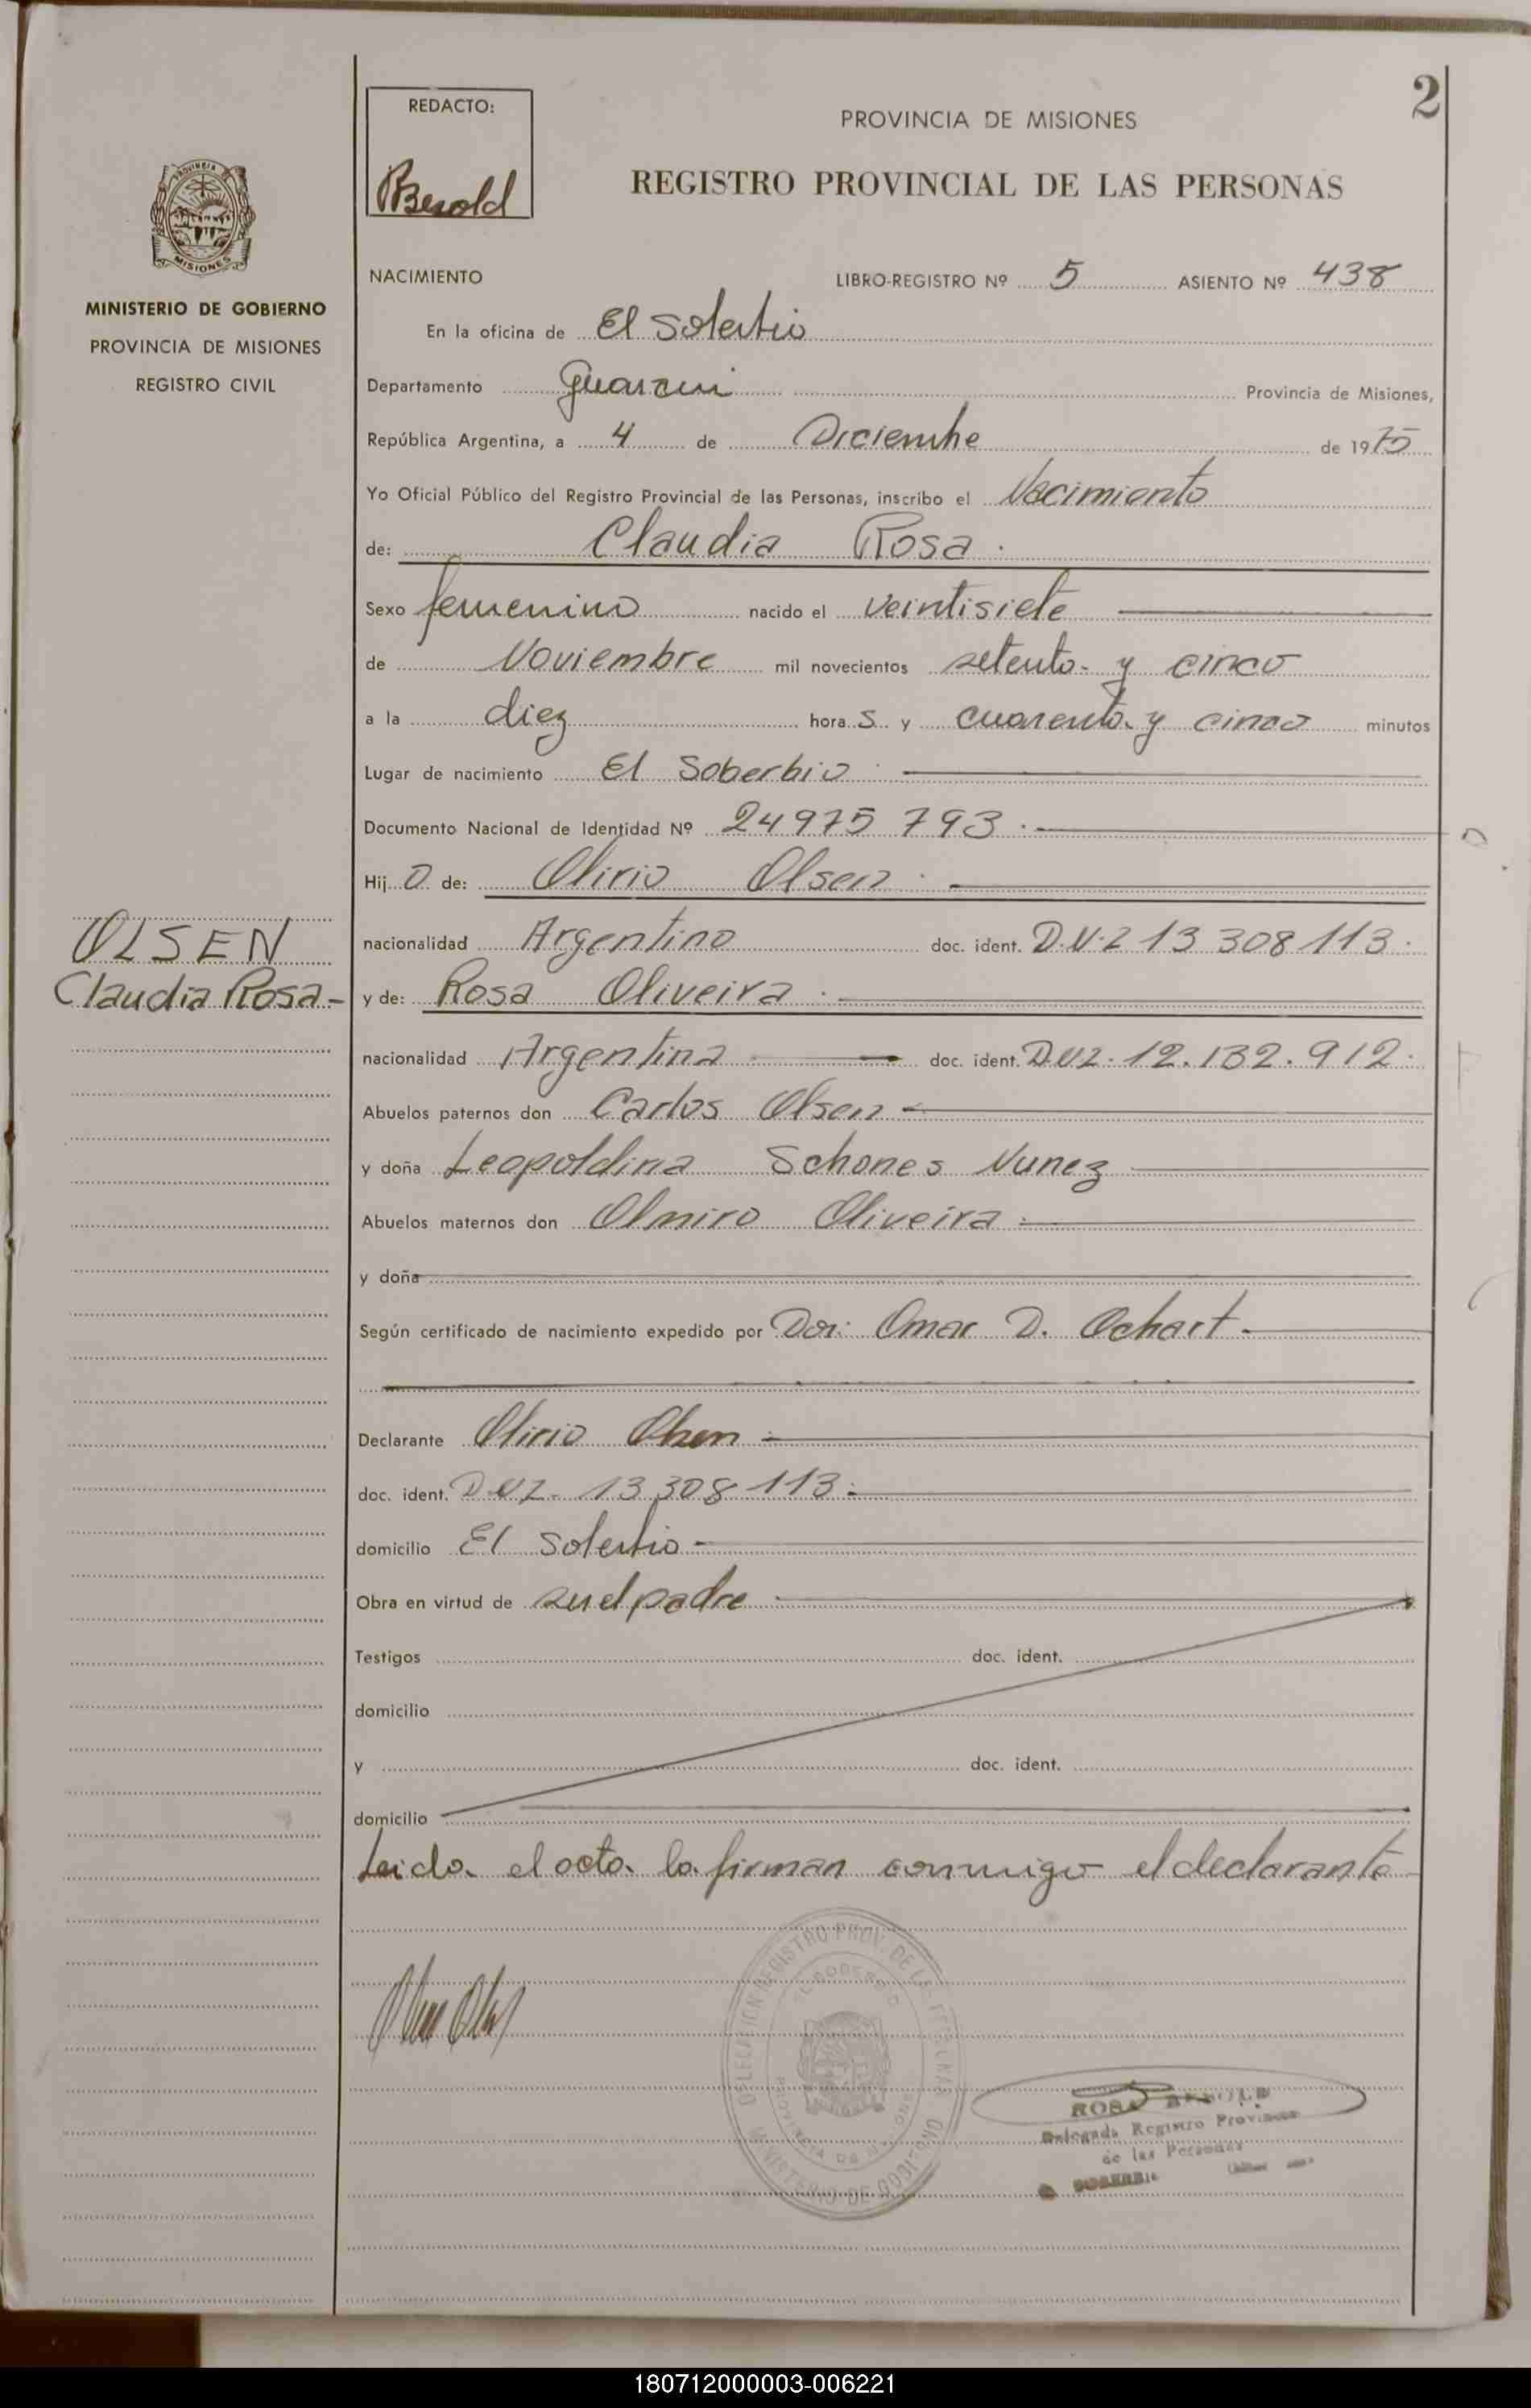 2
REDACTO:
Besold
PROVINCIA DE MISIONES
REGISTRO PROVINCIAL DE LAS PERSONAS
PROVINCIA
MISIONES
MINISTERIO DE GOBIERNO
PROVINCIA DE MISIONES
REGISTRO CIVIL
NACIMIENTO LIBRO-REGISTRO Nº 5 ASIENTO Nº 438
En la oficina de El Soberbio
Departamento Guarani Provincia de Misiones,
República Argentina, a 4 de Diciembre de 1975
Yo Oficial Público del Registro Provincial de las Personas, inscribo el Nacimiento
de: Claudia Rosa.
Sexo femenino nacido el veintisiete
de Noviembre mil novecientos setenta y cinco
a la diez hora s y cuarenta y cinco minutos
Lugar de nacimiento El Soberbio
Documento Nacional de Identidad Nº 24975 793.
Hij a de: Olirio Olsen
OLSEN
Claudia Rosa.-
nacionalidad Argentino doc. ident. D.N.I 13 308 113.
y de: Rosa Oliveira.
nacionalidad Argentina doc. ident. DNI. 12.132.912.
Abuelos paternos don Carlos Olsen
y doña Leopoldina Schones Nunez
Abuelos maternos don Olmiro Oliveira
y doña
Según certificado de nacimiento expedido por Dor: Omar D. Ochart.
Declarante Olirio Olsen
doc. ident. DNI. 13 308 113.
domicilio El Soberbio
Obra en virtud de ser el padre
Testigos doc. ident.
domicilio
y doc. ident.
domicilio
Leida el acta la firman conmigo el declarante
DELEGACION REGISTRO PROV. DE LAS PERSONAS
EL SOBERBIO
PROVINCIA DE MISIONES
MINISTERIO DE GOBIERNO
ROSA BESOLD
Delegada Registro Provincial
de las Personas
SOBERBIO
180712000003-006221